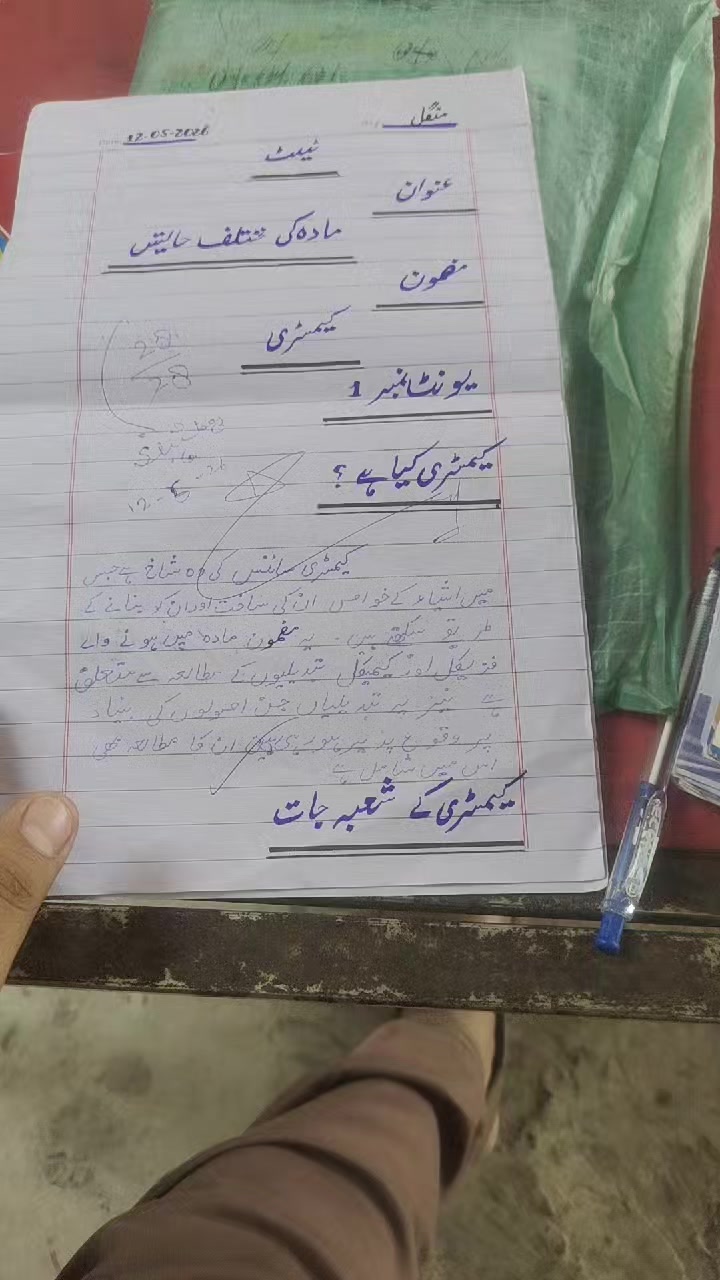 منگل
12-05-2026
ٹیسٹ
عنوان
مادہ کی مختلف حالیتں
مضمون
کیمسٹری
یونٹ نمبر 1
28
28
کیمسٹری کیا ہے ؟
کیمسٹری سائنس کی وہ شاخ ہے جس
میں اشیاء کے خواص ان کی ساخت اور ان کو بنانے کے
طریقے سیکھتے ہیں۔ یہ مضمون مادہ میں ہونے والے
فزیکل اور کیمیکل تبدیلیوں کے مطالعہ سے متعلق
ہے نیز یہ تبدیلیاں جن اصولوں کی بنیاد
پر وقوع پذیر ہو رہی ہیں ان کا مطالعہ بھی
اس میں شامل ہے
کیمسٹری کے شعبہ جات